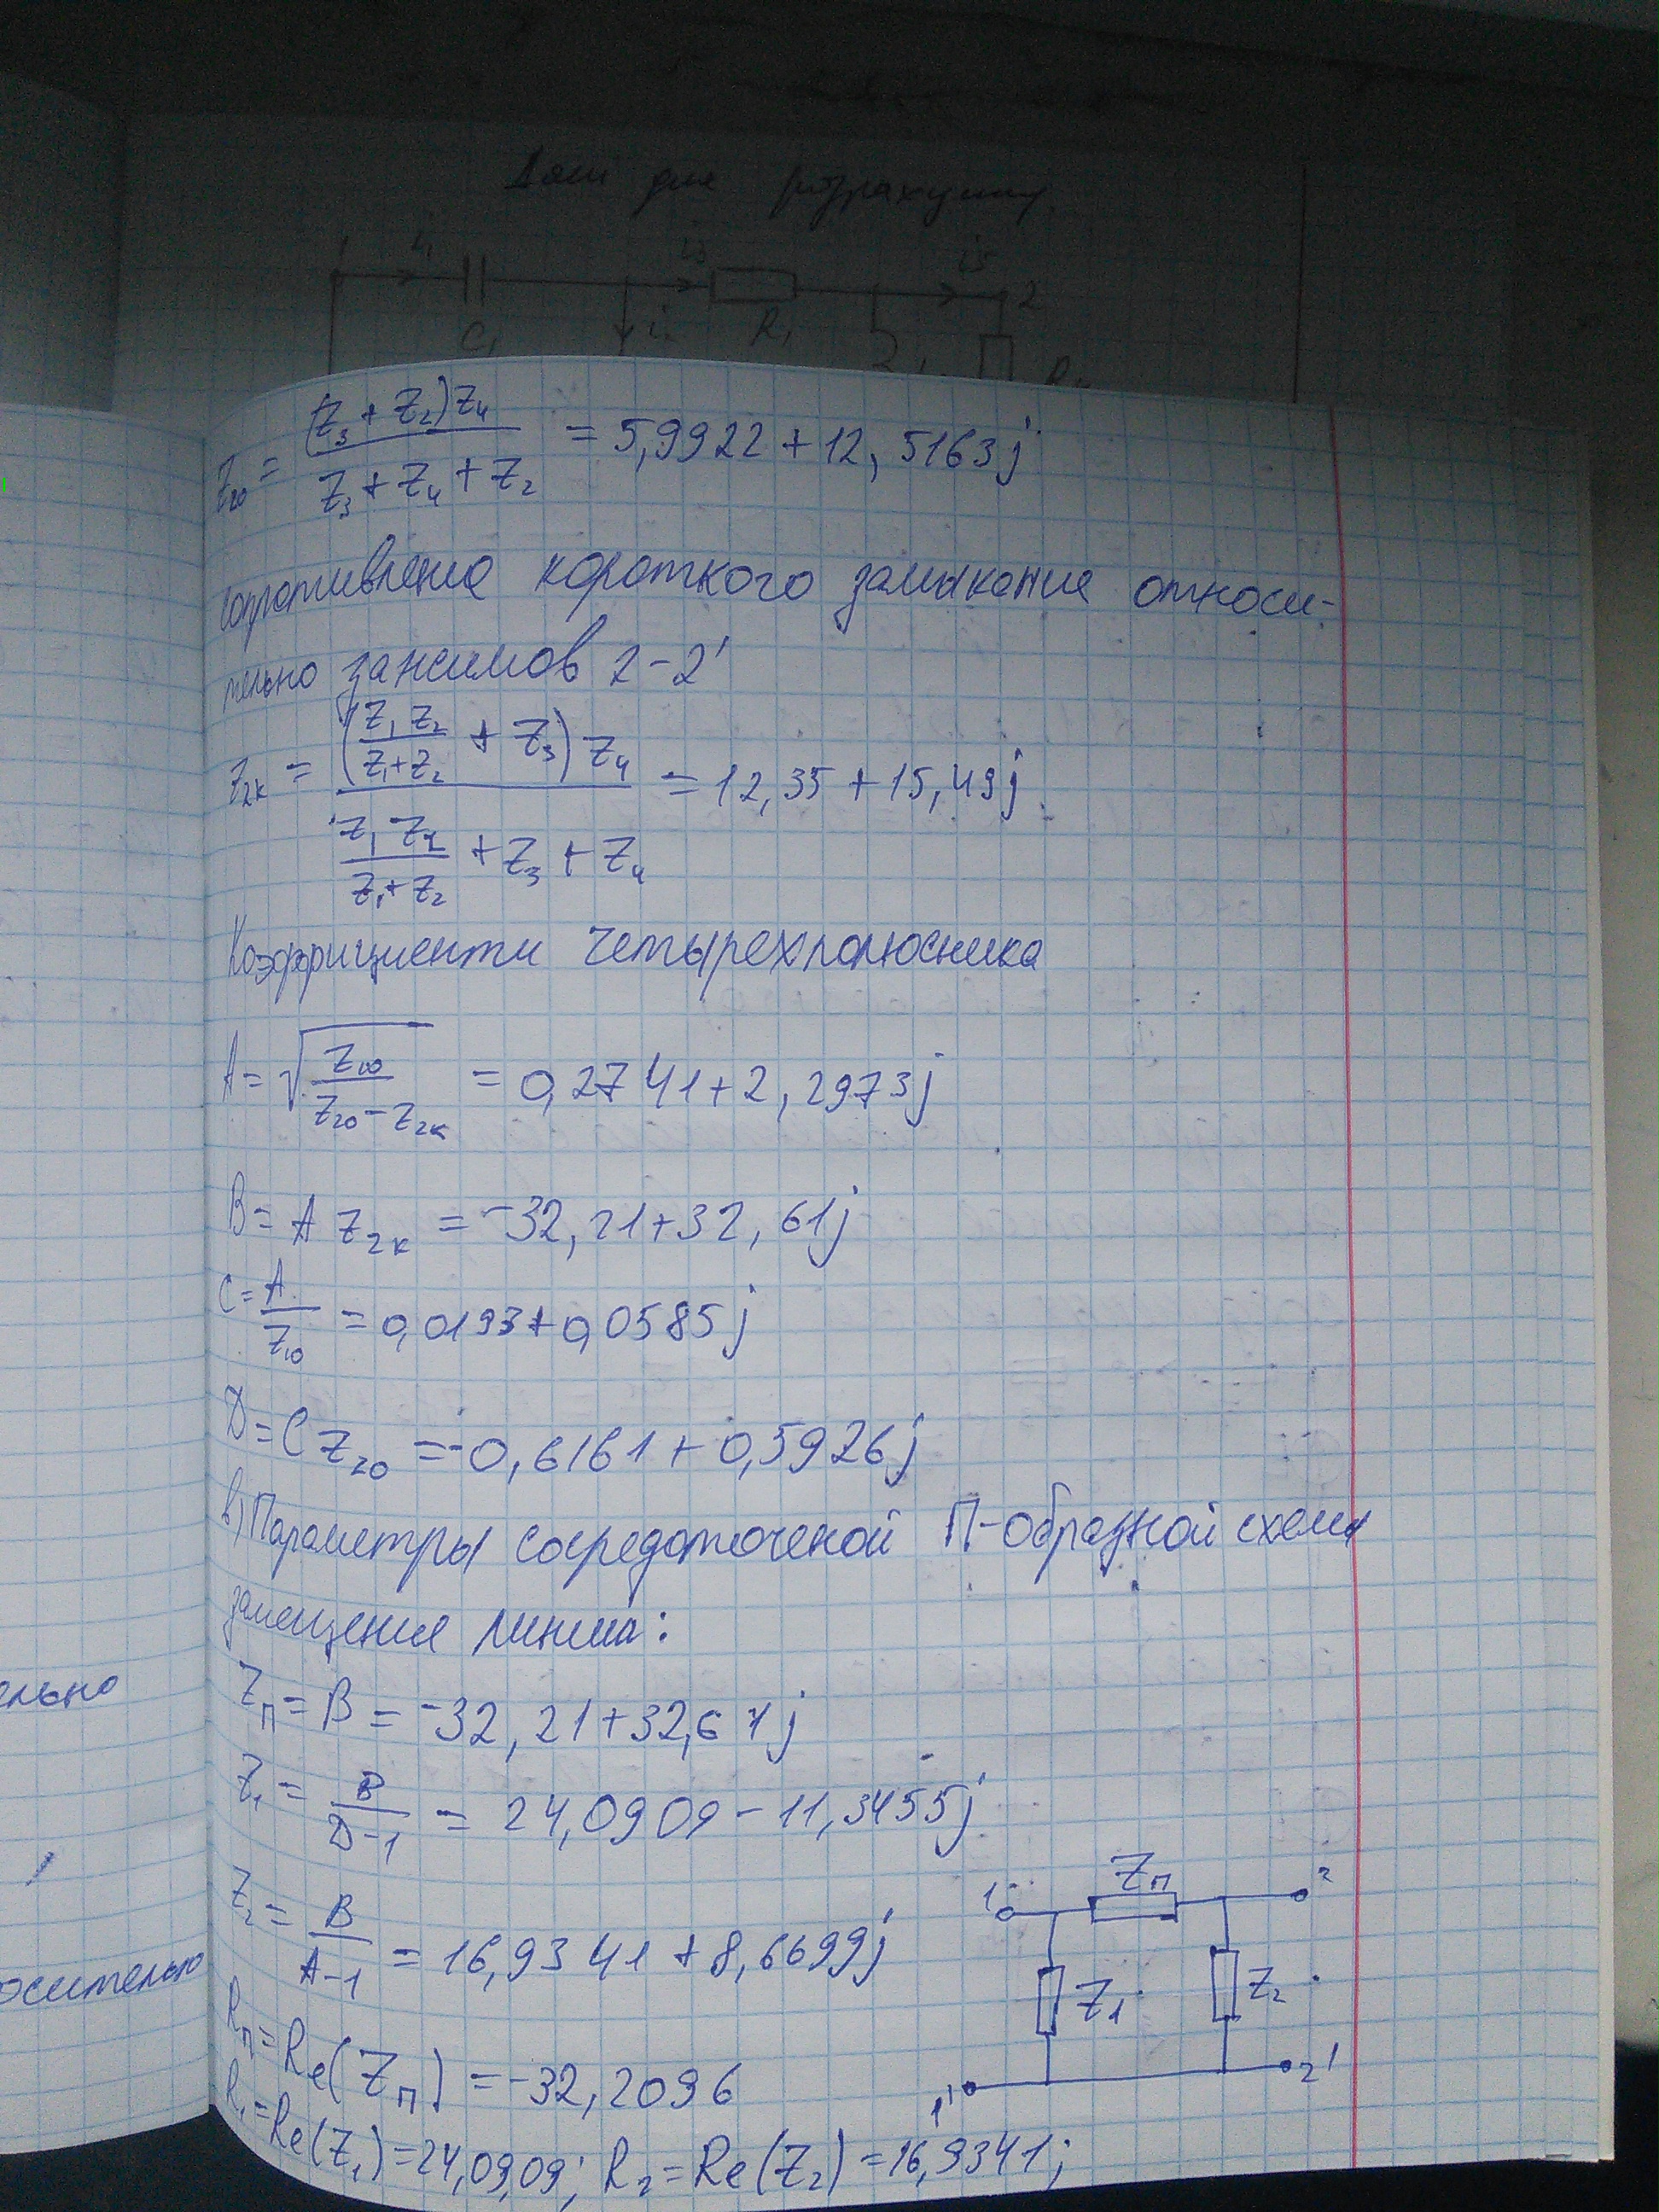 i₃
i₅
2
C₁
R₁
Z₂₀ = (Z₃ + Z₂)Z₄ / Z₃ + Z₄ + Z₂ = 5,9922 + 12,5163j
сопротивление короткого замыкание относи-
тельно зажимов 2-2'
Z₂ₖ = (Z₁ Z₂ / Z₁+Z₂ + Z₃) Z₄ / Z₁ Z₂ / Z₁+Z₂ + Z₃ + Z₄ = 12,35 + 15,49j
Коэффициенти четырехполюсника
A = √ Z₁₀ / Z₂₀ - Z₂ₖ = 0,2741 + 2,2973j
B = A Z₂ₖ = -32,21 + 32,61j
C = A / Z₁₀ = 0,0193 + 0,0585j
D = C Z₂₀ = -0,6161 + 0,5926j
в) Параметры сосредоточеной П-образной схемы
замещения линии:
Zп = B = -32,21 + 32,61j
Z₁ = B / D-1 = 24,0909 - 11,3455j
Z₂ = B / A-1 = 16,9341 + 8,6699j
1
Zп
2
Z₁
Z₂
1'
2'
Rп = Re(Zп) = -32,2096
R₁ = Re(Z₁) = 24,0909; R₂ = Re(Z₂) = 16,9341;
ельно
осительно